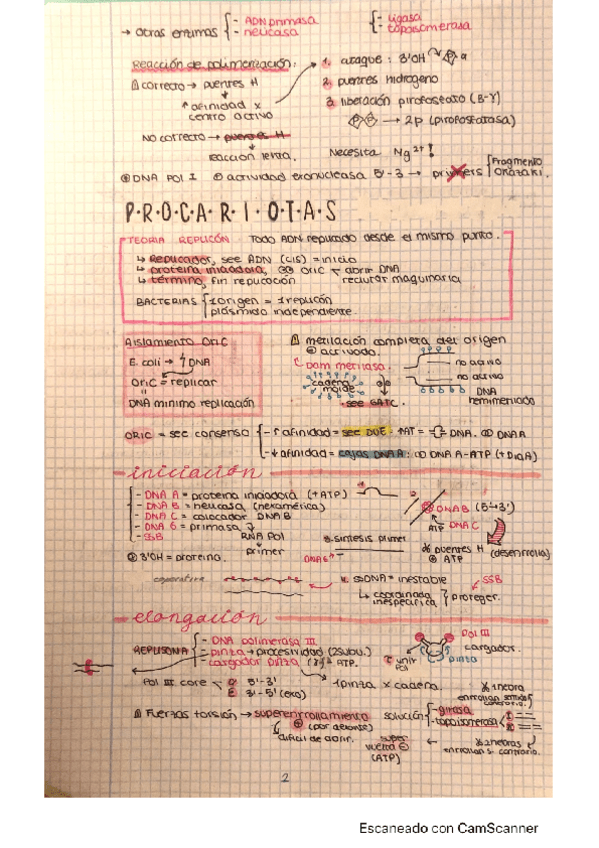 → otras enzimas { - ADN primasa { - ligasa
- helicasa - topoisomerasa
Reacción de polimerización: 1. ataque : 3'OH
correcto → puentes H 2. puentes hidrogeno
↑ afinidad x 3. liberación pirofosfato (β-γ)
centro activo → 2P (pirofosfatasa)
NO correcto → puentes H
reacción lenta. Necesita Mg 2+ !
DNA Pol I actividad exonucleasa 5'-3' → primers { Fragmento
Okazaki.
P·R·O·C·A·R·I·O·T·A·S
TEORIA REPLICÓN Todo ADN replicado desde el mismo punto.
↳ Replicador, sec ADN (cis) = inicio
↳ proteína iniciadora, OriC abrir DNA
↳ término, fin replicación reclutar maquinaria
BACTERIAS { 1 origen = 1 replicón
plásmido independiente.
Aislamiento OriC metilación completa del origen
activado.
E. coli → DNA Dam metilasa. no activo
OriC = replicar cadena no activo
molde DNA
DNA minimo replicación sec GATC. hemimetilado
ORIC = sec consenso { - ↑ afinidad = sec DUE : ↑AT = DNA. DNAA
- ↓ afinidad = cajas DNAA : DNA A-ATP (+DiaA)
iniciación
- DNA A = proteína iniciadora (+ATP)
- DNA B = helicasa (hexamérica) DNAB (5'→3')
- DNA C = colocador DNA B ATP DNA C
- DNA G = primasa
- SSB RNA Pol síntesis primer puentes H (desenrolla)
primer ATP
3'OH = proteína. DNAG
cooperativa ssDNA = inestable SSB
↳ coordinada } proteger.
inespecífica
elongación
REPLISOMA { - DNA polimerasa III Pol III
- pinza → procesividad (2subu.) cargador.
- cargador pinza ATP. unir pinza
Pol
Pol III core 5'-3' 1 pinza x cadena.
3'-5' (exo)
Fuerzas torsión → superenrollamiento solución { - girasa
- topoisomerasa { I
II
(por delante)
difícil de abrir. super
vuelta
(ATP)
2
Escaneado con CamScanner